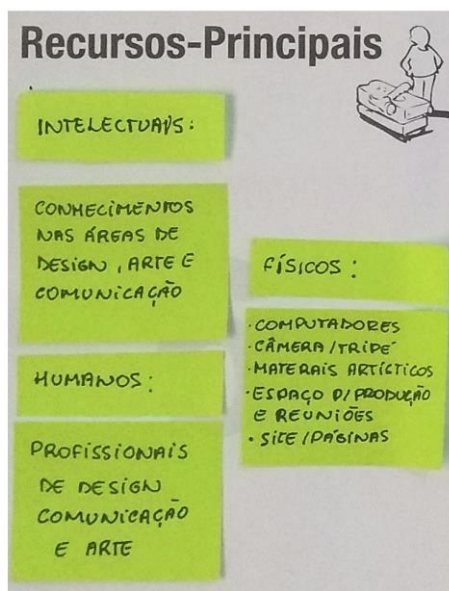 Recursos-Principais
INTELECTUAIS:
CONHECIMENTOS
NAS ÁREAS DE
DESIGN, ARTE E
COMUNICAÇÃO
HUMANOS:
PROFISSIONAIS
DE DESIGN
COMUNICAÇÃO
E ARTE
FÍSICOS:
· COMPUTADORES
· CÂMERA / TRIPÉ
· MATERAIS ARTÍSTICOS
· ESPAÇO P/ PRODUÇÃO
E REUNIÕES
· SITE / PÁGINAS